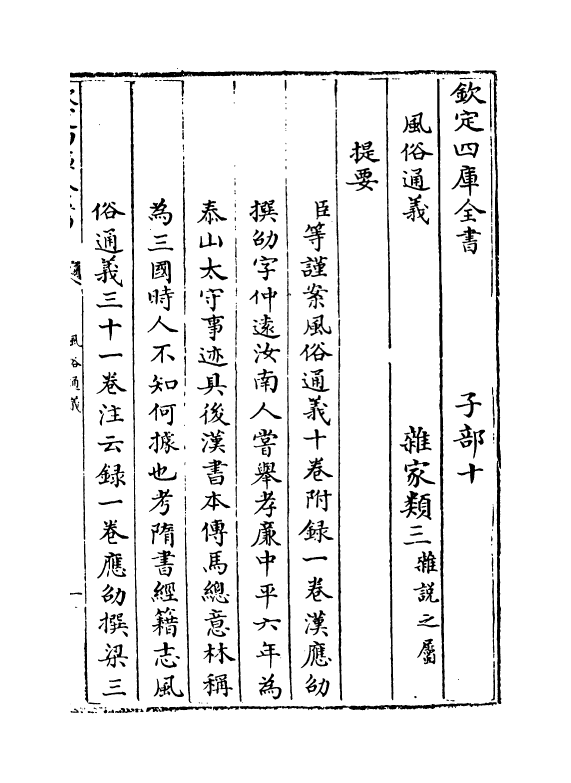 欽定四庫全書 子部十
風俗通義 雜家類三雜說之屬
提要
臣等謹案風俗通義十卷附録一卷漢應劭
撰劭字仲逺汝南人嘗舉孝廉中平六年為
泰山太守事迹具後漢書本傳馬總意林稱
為三國時人不知何據也考隋書經籍志風
俗通義三十一卷注云録一卷應劭撰梁三
風俗通義 一